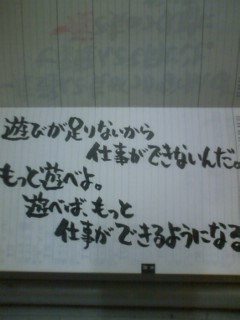 遊びが足りないから
仕事ができないんだ。
もっと遊べよ。
遊べば、もっと
仕事ができるようになる